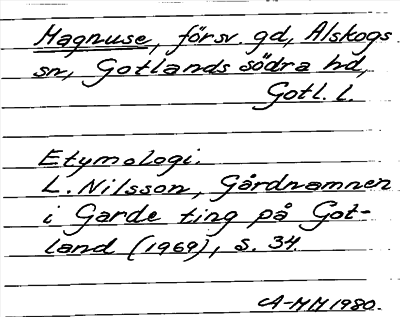 Magnuse, försv. gd, Alskogs
sn, Gotlands södra hd,
Gotl. l.
Etymologi.
L. Nilsson, Gårdnamnen
i Garde ting på Got-
land (1969), s. 34.
A-MM 1980.